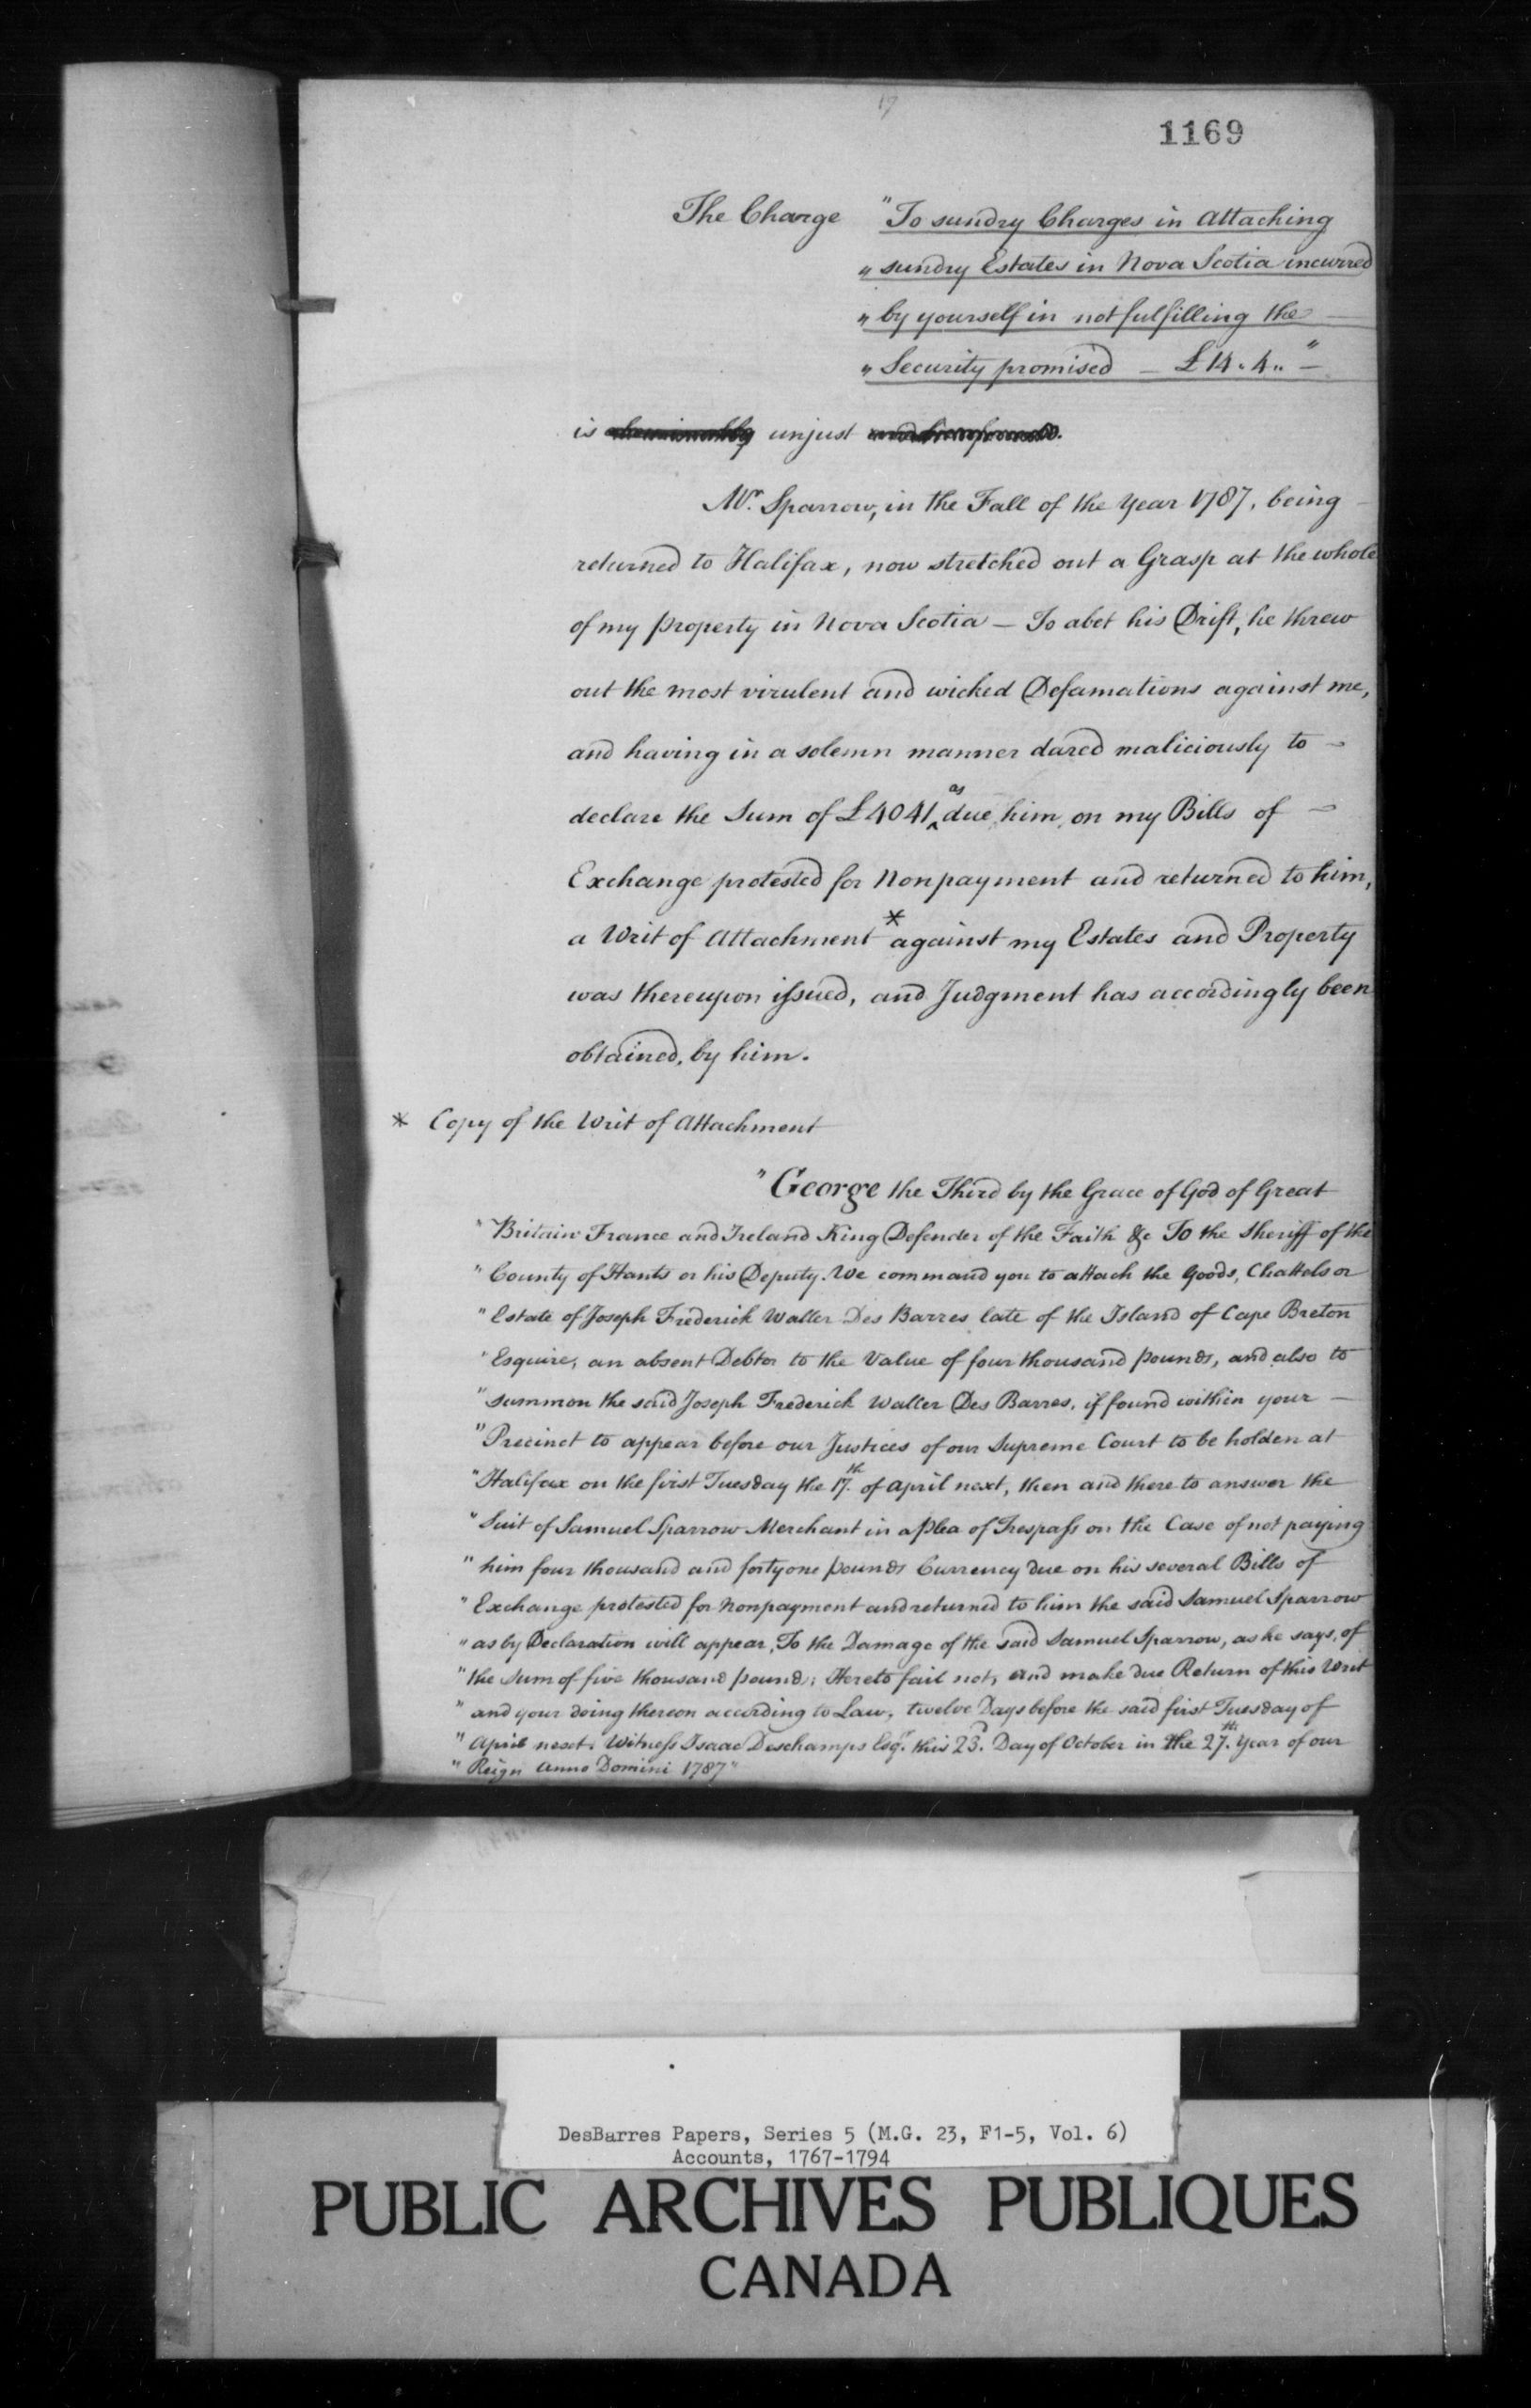 19
1169
The Charge "To sundry Charges in Attaching
" sundry Estates in Nova Scotia incurred
" by yourself in not fulfilling the —
" Security promised — £14.4.." —
is unjust
Mr. Sparrow, in the Fall of the Year 1787, being —
returned to Halifax, now stretched out a Grasp at the whole
of my property in Nova Scotia — To abet his Drift, he threw
out the most virulent and wicked Defamations against me,
and having in a solemn manner dared maliciously to —
declare the Sum of £4041 ^as due him, on my Bills of —
Exchange protested for Nonpayment and returned to him,
a Writ of Attachment * against my Estates and Property
was thereupon issued, and Judgment has accordingly been
obtained, by him.
* Copy of the Writ of Attachment
"George the Third by the Grace of God of Great
"Britain France and Ireland King Defender of the Faith &c To the Sheriff of the
"County of Hants or his Deputy. We command you to attach the Goods, Chattels or
"Estate of Joseph Frederick Waller Des Barres late of the Island of Cape Breton
"Esquire, an absent Debtor to the Value of four thousand pounds, and also to
"summon the said Joseph Frederick Waller Des Barres, if found within your —
"Precinct to appear before our Justices of our Supreme Court to be holden at
"Halifax on the first Tuesday the 17th. of April next, then and there to answer the
"Suit of Samuel Sparrow Merchant in a Plea of Trespass on the Case of not paying
"him four thousand and forty one pounds Currency due on his several Bills of
"Exchange protested for Nonpayment and returned to him the said Samuel Sparrow
"as by Declaration will appear, To the Damage of the said Samuel Sparrow, as he says, of
"the Sum of five thousand pounds; Hereto fail not, and make due Return of this Writ
"and your doing thereon according to Law, twelve Days before the said first Tuesday of
"April next. Witness Isaac Deschamps Esqr. this 23d. Day of October in the 27th. Year of our
"Reign Anno Domini 1787"
DesBarres Papers, Series 5 (M.G. 23, F1-5, Vol. 6)
Accounts, 1767-1794
PUBLIC ARCHIVES PUBLIQUES
CANADA